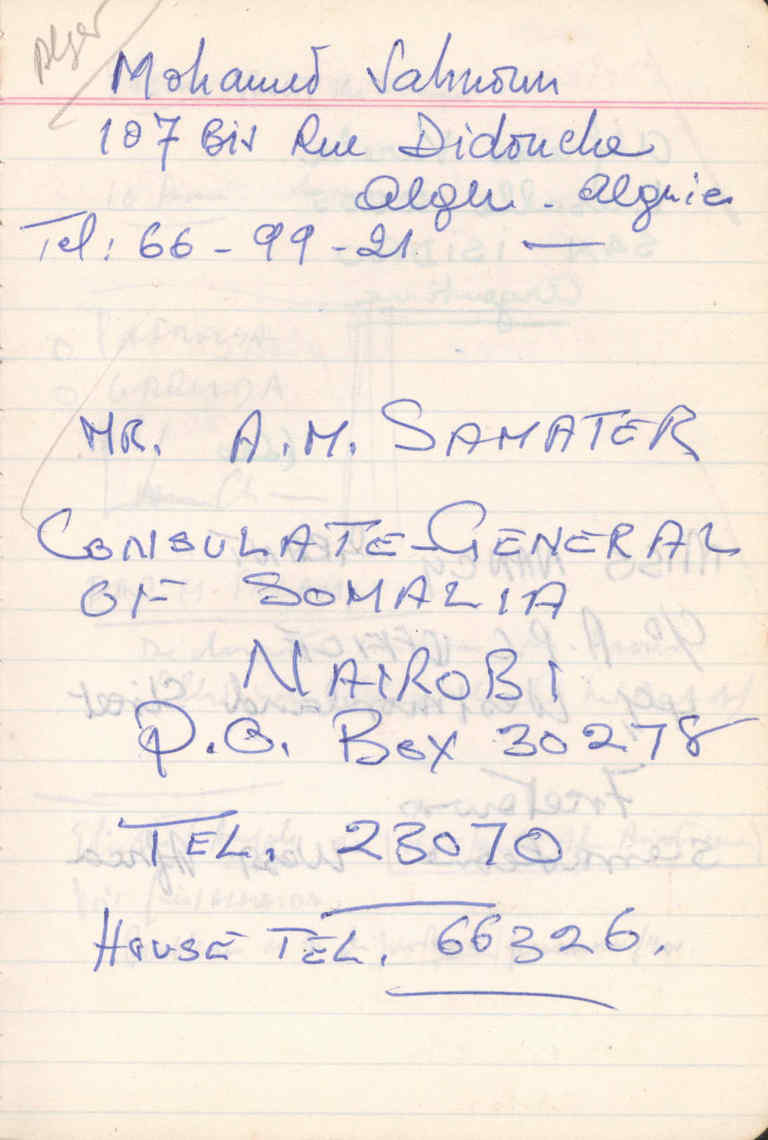 Alger
Mohamed Sahnoun
107 Bis Rue Didouche
Alger - Algérie
Tel: 66-99-21
MR. A.M. SAMATER
CONSULATE-GENERAL
OF SOMALIA
NAIROBI
P.O. Box 30278
TEL. 23070
HOUSE TEL. 66326.